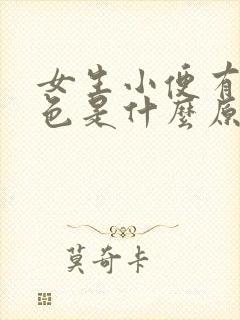 女生小便有
色是什麼原
莫奇卡